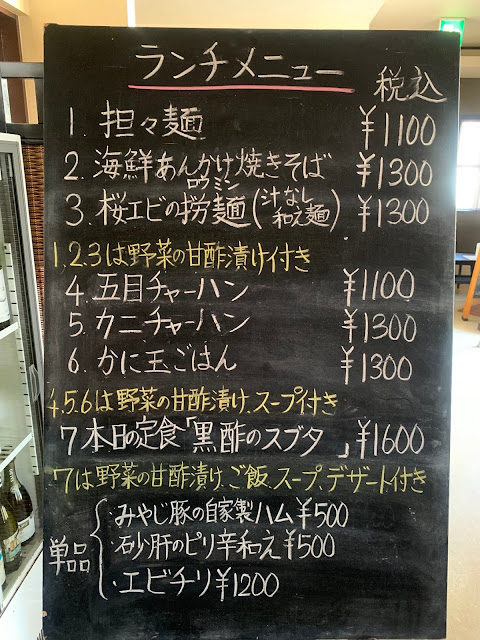 ランチメニュー
税込
1. 担々麺 ¥1100
2. 海鮮あんかけ焼きそば ¥1300
ロウミン
3. 桜エビの撈麺(汁なし和え麺) ¥1300
1.2.3は野菜の甘酢漬け付き
4. 五目チャーハン ¥1100
5. カニチャーハン ¥1300
6. かに玉ごはん ¥1300
4.5.6は野菜の甘酢漬け、スープ付き
7 本日の定食「黒酢のスブタ」¥1600
7は野菜の甘酢漬け、ご飯、スープ、デザート付き
単品
・みやじ豚の自家製ハム¥500
・砂肝のピリ辛和え¥500
・エビチリ¥1200